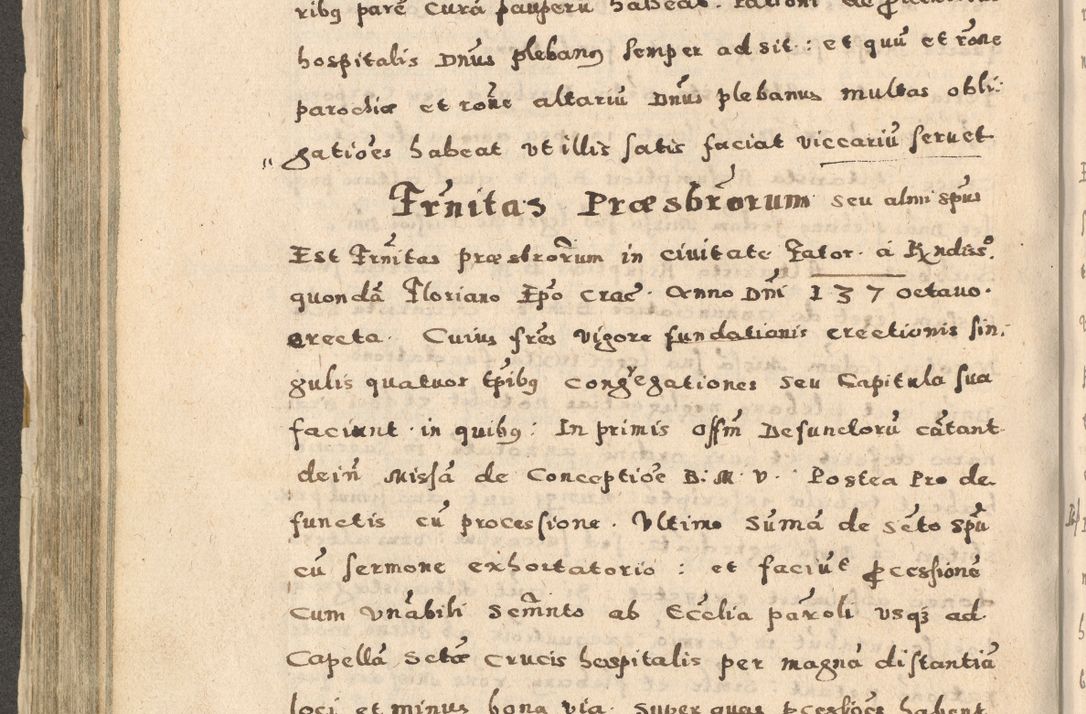 ribq parē Curā pauperū habeat.
hospitalis Dn̄us plebanq semper ad sit: et quū et rōne
parochiæ et rōne altariū Dn̄us plebanus multas obli-
gatiōes habeat ut illis satis faciat viccariū seruet
Frn̄itas Præsbrōrum seu almi spūs
Est Frn̄itas præsbrōrum in ciuitate Zator. á Rndiss°.
quondā Floriano Epō Crac. Anno Dn̄i 137 octauo.
erecta. Cuius frēs vigore fundationis erectionis sin-
gulis quatuor tp̄ibq congregationes seu Capitula sua
faciunt in quibq: In primis offm̄ Defunctorū cātant
dein̄ Missā de Conceptiōe B. M. V. Postea Pro de
functis cū processione. Vltimo Sumā de scto spū
cū sermone exhortatorio: et faciūt pcessionē
cum Vnābili Scmn̄to ab Eccēlia parōli usq3 ad
Capellā Sctæ Crucis hospitalis per magnā distantiā
loci et minus bona via. Super quas pcessiōes habent